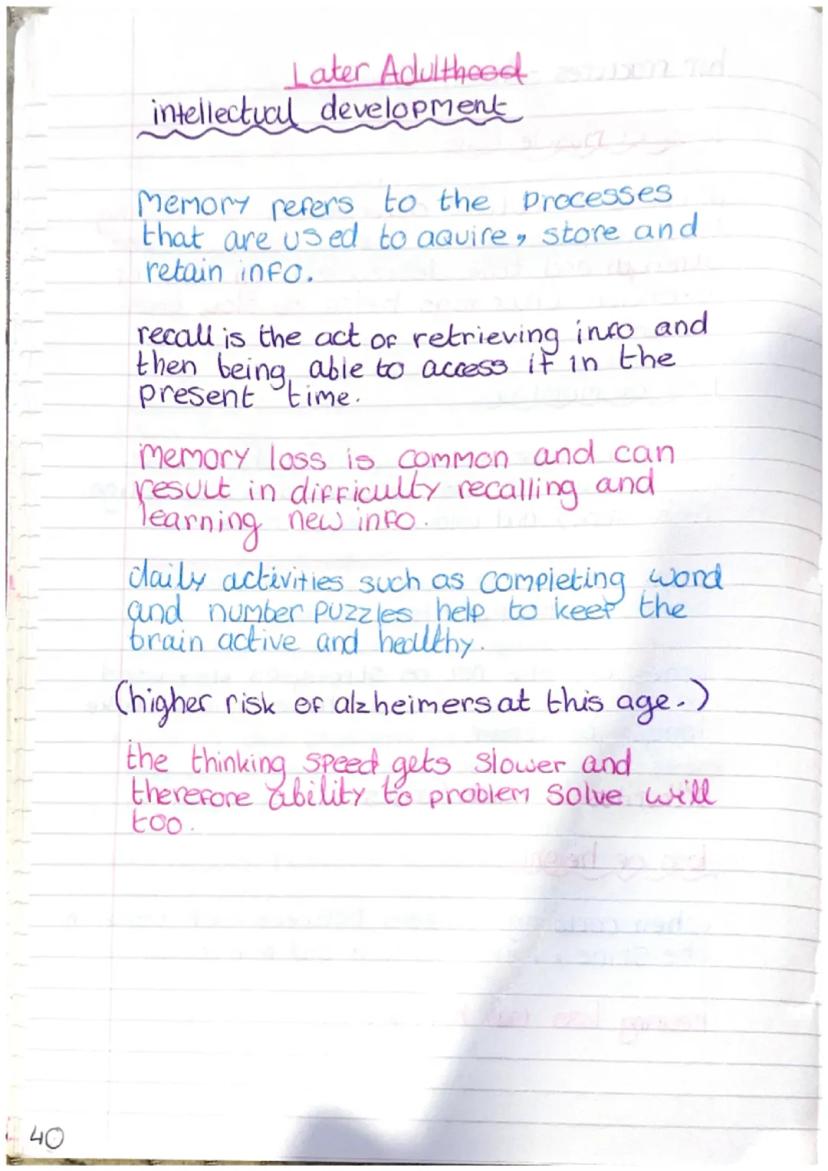 Later Adulthood
intellectual development
Memory refers to the processes
that are used to aquire, store and
retain info.
recall is the act of retrieving info and
then being able to access it in the
present time.
Memory loss is common and can
result in difficulty recalling and
learning new info.
daily activities such as completing word
and number puzzles help to keep the
brain active and healthy.
(higher risk of alzheimers at this age.)
the thinking speed gets slower and
therefore ability to problem solve will
too.
40